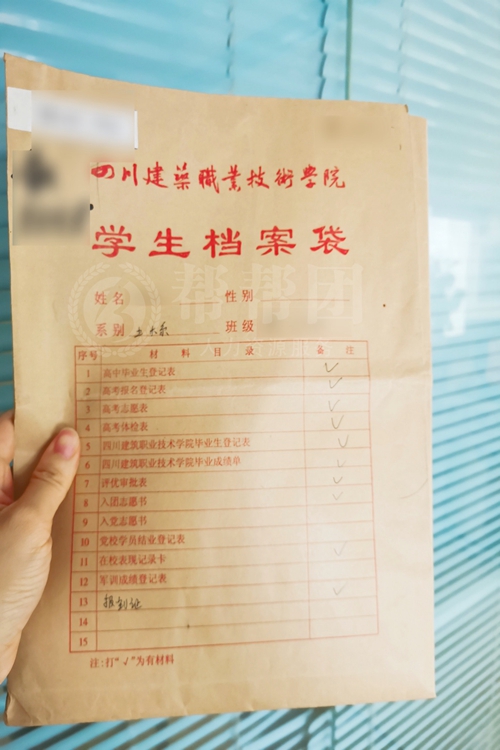 四川建築職業技術學院
学生档案袋
姓名 性别
系别 土木系 班级
序号 材料目录 备注
1 高中毕业生登记表 √
2 高考报名登记表 √
3 高考志愿表 √
4 高考体检表 √
5 四川建筑职业技术学院毕业生登记表 √
6 四川建筑职业技术学院毕业成绩单 √
7 评优审批表 √
8 入团志愿书 √
9 入党志愿书
10 党校学员结业登记表
11 在校表现记录卡 √
12 军训成绩登记表
13 报到证 √
14
15
注:打“√”为有材料
帮帮团